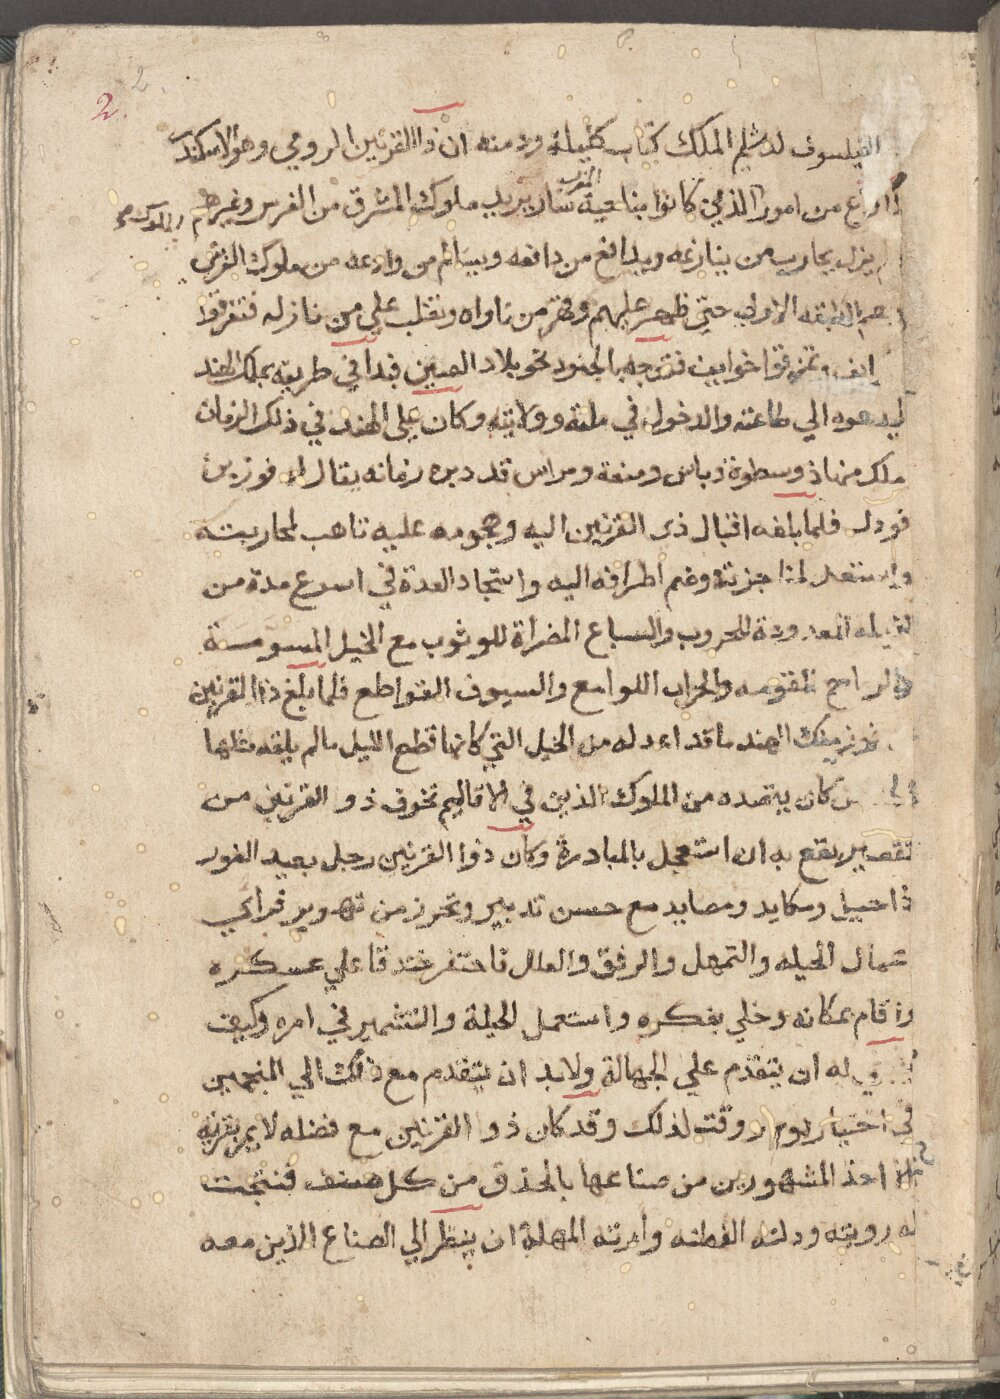 2 2
الفيلسوف لدبشليم الملك كتاب كليله ودمنه ان ذا القرنين الرومي وهو الاسكند
فرغ من امور الذين كانوا بناحية المغرب سار يريد ملوك المشرق من الفرس وغيرهم
يزل يحارب من ينازعه ويدافع من دافعه ويسالم من وادعه من ملوك الفرس
الطبقه الاولي حتي ظهر عليهم وقهر من ناواه وتغلب علي من نازله فتفرقوا
وتمزقوا خرايب فتوجه بالجنود نحو بلاد الصين فبدا في طريقه بملك الهند
ليدعوه الي طاعته والدخول في ملته وولايته وكان علي الهند في ذلك الزمان
ملك منها ذو سطوة وباس ومنعة ومراس قد دبره زمانه يقال له فوز بن
فودل فلما بلغه اقبال ذي القرنين اليه وهجومه عليه تاهب لمحاربته
واستعد لمناجزته وضم اطرافه اليه واستجاد العدة في اسرع مدة من
الفيله المعدودة للحروب والسباع المضراة للوثوب مع الخيل المسومسة
والرماح المقومه والحراب اللوامع والسيوف القواطع فلما بلغ ذا القرنين
فوز ملك الهند ما قد اعد له من الخيل التي كانها قطع الليل مالم يلقه مثلها
من كان يقصده من الملوك الذين في الاقاليم تخوف ذو القرنين من
تقصير يقع به ان استعجل بالمبادرة وكان ذوا القرنين رجل بعيد الغور
ذا حيل ومكايد ومصايد مع حسن تدبير وتحرز من تهوير فراي
عمال الحيله والتمهل والرفق والعلل فاحتفر خندقا علي عسكره
واقام مكانه وخلي بفكره واستعمل الحيلة والتشمير في امره وكيف
له ان يتقدم علي الجهالة ولابد ان يتقدم مع ذلك الي المنجمين
في اختيار يوم ووقت لذلك وقد كان ذو القرنين مع فضله لا يمر بقريه
الا اخذ المشهورين من صناعها بالحذق من كل صنف فنتجت
له رويته ودلته الفطنه وامرته المهلة ان ينظر الي الصناع الذين معه